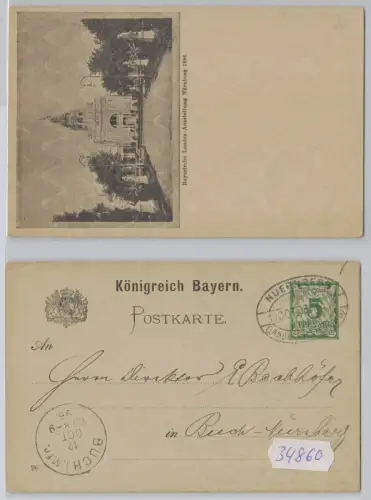 Bayerische Landes-Ausstellung Nürnberg 1896.
Königreich Bayern.
POSTKARTE.
NUERNBERG
5
PFENNIG
An
Herrn Direktor
in Buch-Nürnberg
BUCH
12
OCT
34860